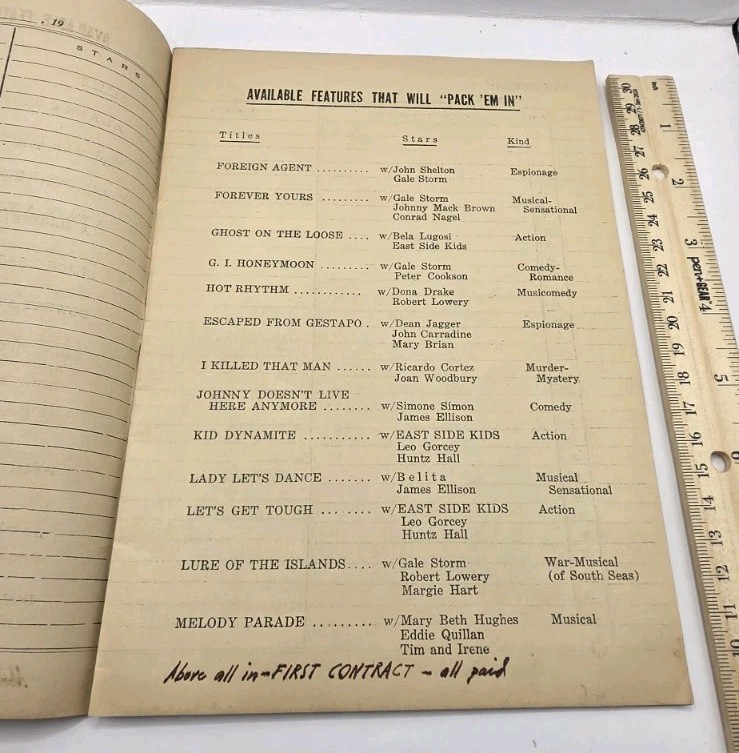 , 19
STARS
AVAILABLE FEATURES THAT WILL "PACK 'EM IN"
Titles Stars Kind
FOREIGN AGENT .......... w/John Shelton Espionage
Gale Storm
FOREVER YOURS ......... w/Gale Storm Musical-
Johnny Mack Brown Sensational
Conrad Nagel
GHOST ON THE LOOSE .... w/Bela Lugosi Action
East Side Kids
G. I. HONEYMOON ......... w/Gale Storm Comedy-
Peter Cookson Romance
HOT RHYTHM ............ w/Dona Drake Musicomedy
Robert Lowery
ESCAPED FROM GESTAPO . w/Dean Jagger Espionage
John Carradine
Mary Brian
I KILLED THAT MAN ...... w/Ricardo Cortez Murder-
Joan Woodbury Mystery
JOHNNY DOESN'T LIVE
HERE ANYMORE ........ w/Simone Simon Comedy
James Ellison
KID DYNAMITE ........... w/EAST SIDE KIDS Action
Leo Gorcey
Huntz Hall
LADY LET'S DANCE ....... w/Belita Musical
James Ellison Sensational
LET'S GET TOUGH ........ w/EAST SIDE KIDS Action
Leo Gorcey
Huntz Hall
LURE OF THE ISLANDS.... w/Gale Storm War-Musical
Robert Lowery (of South Seas)
Margie Hart
MELODY PARADE ......... w/Mary Beth Hughes Musical
Eddie Quillan
Tim and Irene
Above all in - FIRST CONTRACT - all paid
30 29 28 27 26 25 24 23 22 21 20 19 18 17 16 15 14 13 12 11 10
1 2 3 4 5 6
pen+GEAR